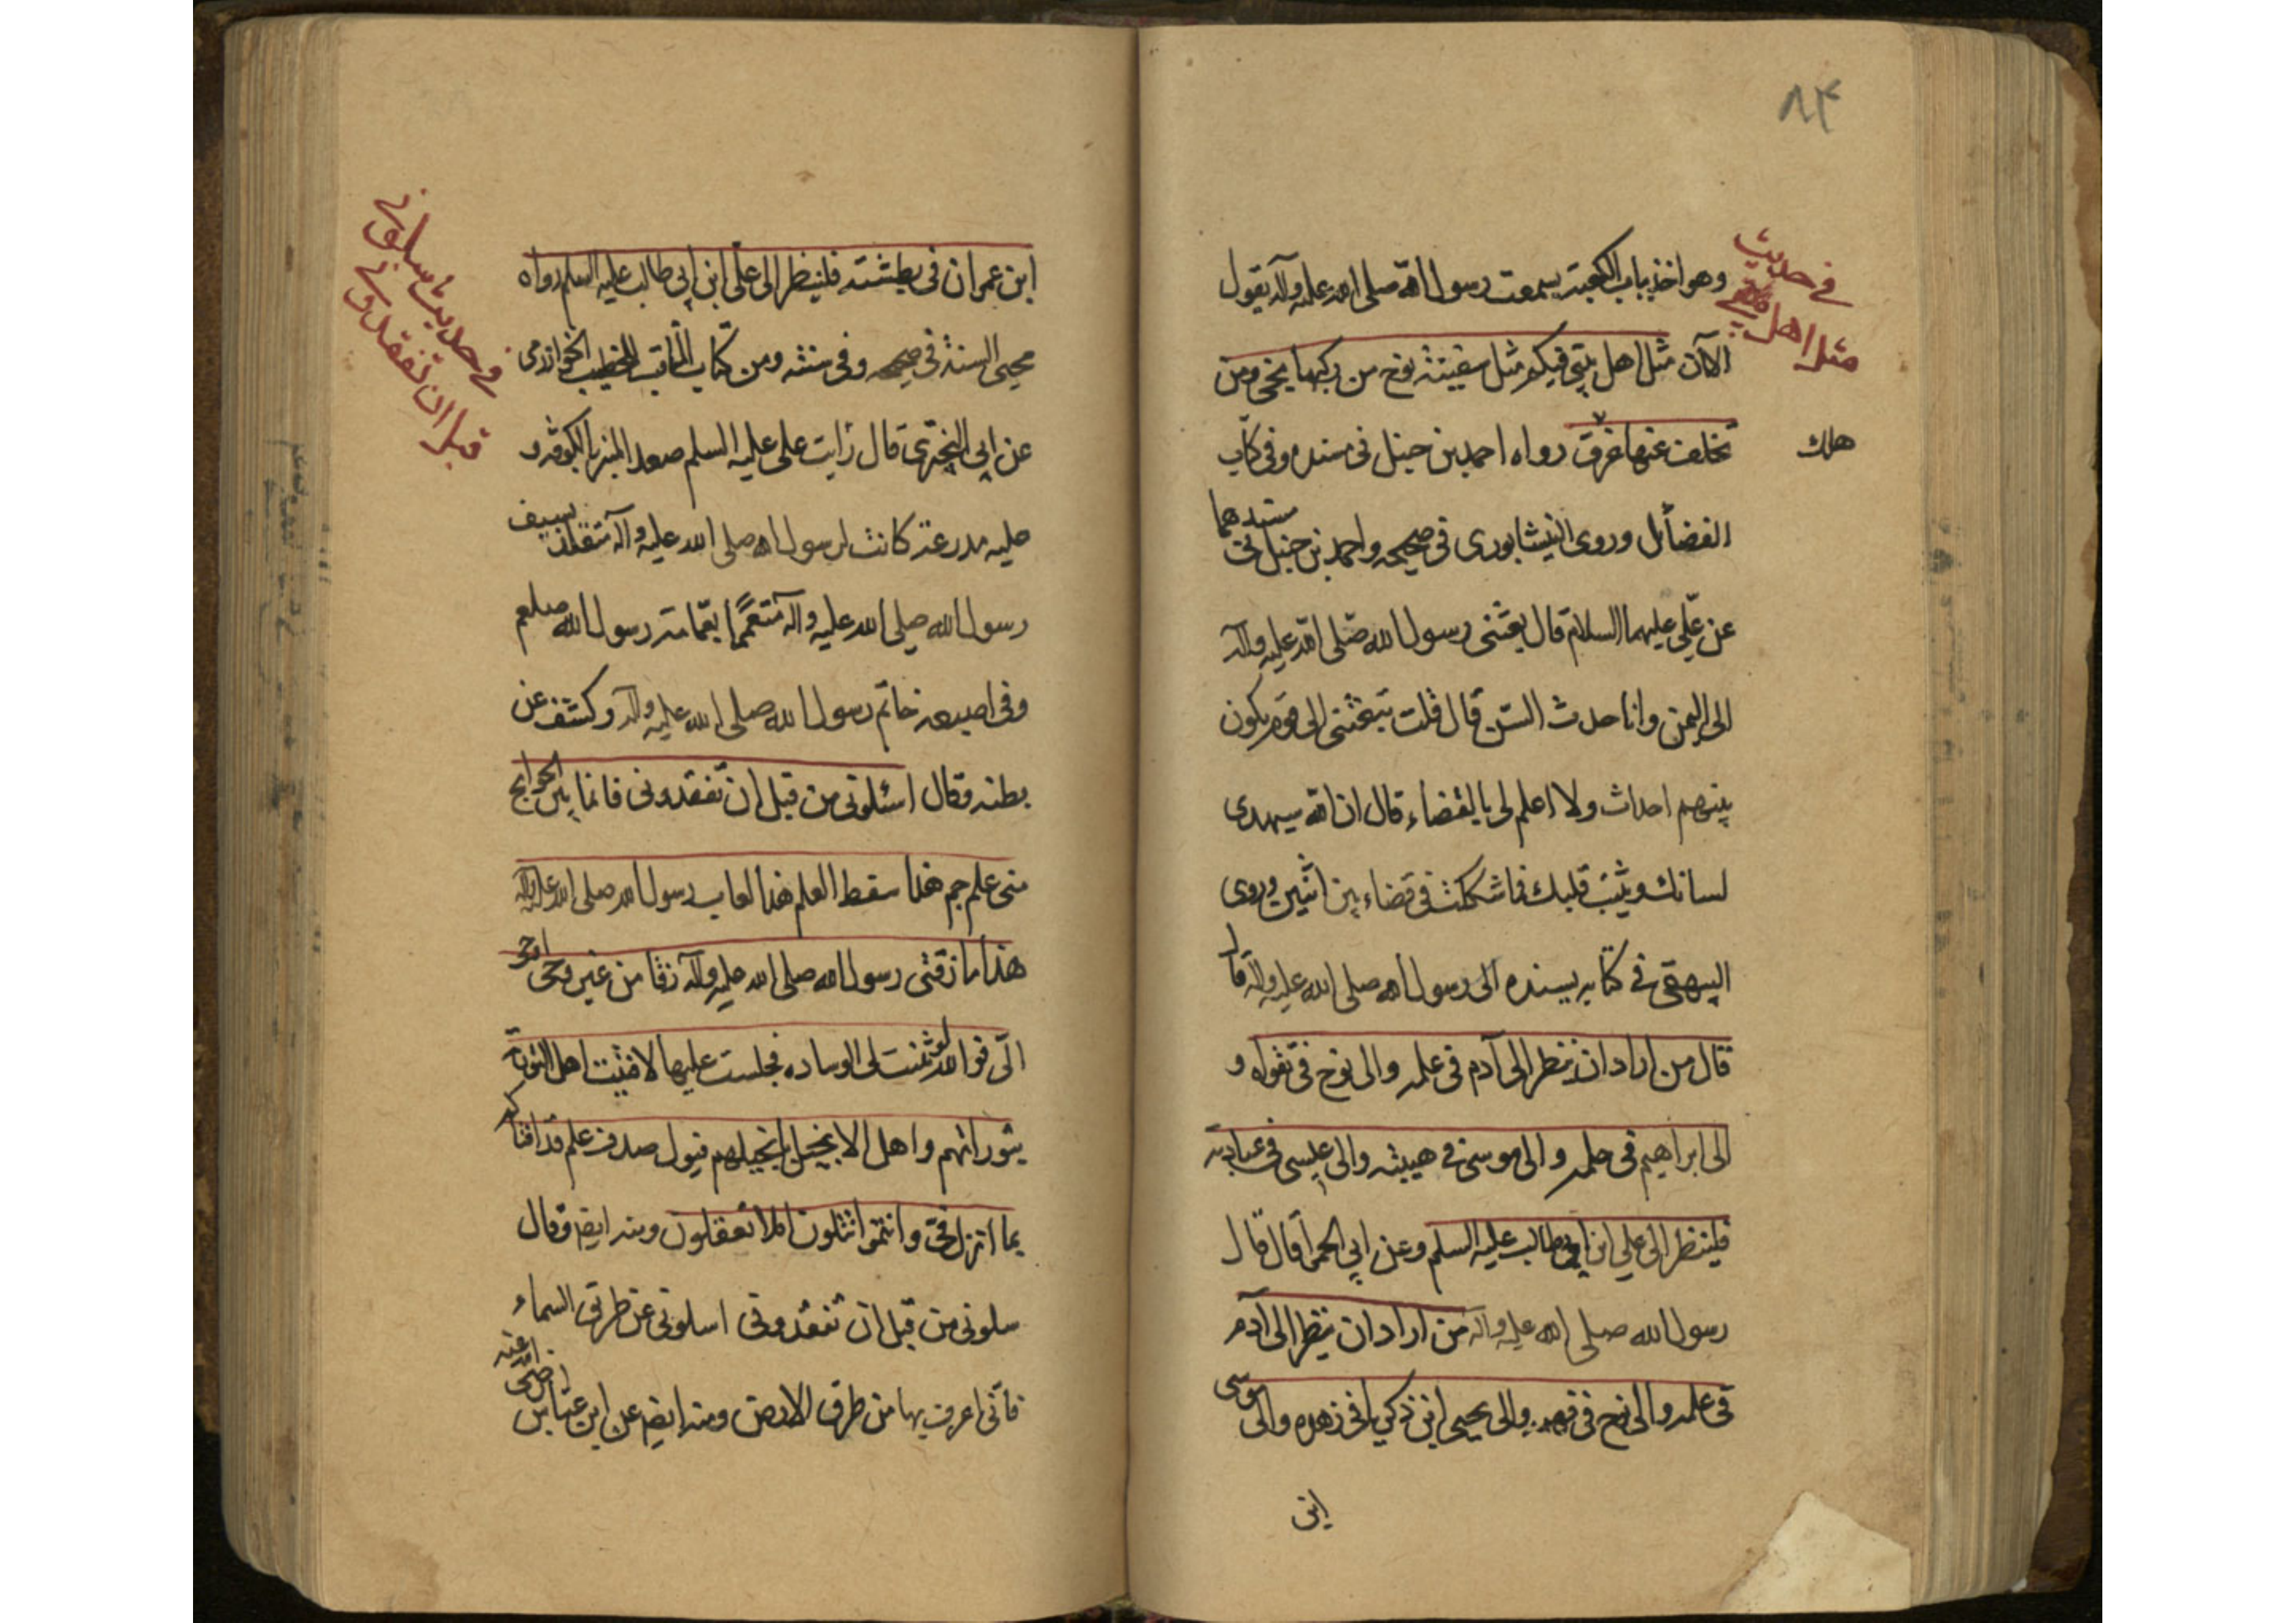 ۸۴
في حديث
مثل اهل بيتي
وهو اخذ بباب الكعبة سمعت رسول الله صلى الله عليه وآله يقول
الا ان مثل اهل بيتي فيكم مثل سفينة نوح من ركبها نجى ومن
تخلف عنها غرق رواه احمد بن حنبل في مسنده وفي كتاب
هلك
الفضائل وروى النيشابوري في صحيحه واحمد بن حنبل في مسندهما
عن علي عليهما السلام قال بعثني رسول الله صلى الله عليه وآله
الى اليمن وانا حدث السن قال قلت تبعثني الى قوم يكون
بينهم احداث ولا اعلم لي بالقضاء قال ان الله سيهدي
لسانك ويثبت قلبك فما شككت في قضاء بين اثنين وروى
البيهقي في كتابه بسنده الى رسول الله صلى الله عليه وآله قال
قال من اراد ان ينظر الى آدم في علمه والى نوح في تقواه و
الى ابراهيم في حلمه والى موسى في هيبته والى عيسى في عبادته
فلينظر الى علي ابن ابي طالب عليه السلم وعن ابي الحمرا قال قال
رسول الله صلى الله عليه وآله من اراد ان ينظر الى آدم
في علمه والى نوح في فهمه والى يحيى ابن زكريا في زهده والى موسى
ابن
في حديث سلوني
قبل ان تفقدوني
ابن عمران في بطشته فلينظر الى علي ابن ابي طالب عليه السلم رواه
محيي السنة في صحيحه وفي سننه ومن كتاب المناقب للخطيب الخوارزمي
عن ابي البختري قال رايت علي عليه السلم صعد المنبر بالكوفة و
عليه مدرعة كانت لرسول الله صلى الله عليه وآله متقلدا بسيف
رسول الله صلى الله عليه وآله متعمما بعمامة رسول الله صلعم
وفي اصبعه خاتم رسول الله صلى الله عليه وآله وكشف عن
بطنه وقال اسئلوني من قبل ان تفقدوني فانما بين الجوانح
مني علم جم هذا سفط العلم هذا لعاب رسول الله صلى الله عليه وآله
هذا ما زقني رسول الله صلى الله عليه وآله زقا من غير وحي اوحي
الى فوالله لو ثنيت لي الوساده فجلست عليها لافتيت اهل التوراة
بتوراتهم واهل الانجيل بانجيلهم فيقول صدق علم قد افتاكم
بما انزل في وانتم تتلون افلا تعقلون ومنه ايضا وقال
سلوني من قبل ان تفقدوني اسلوني عن طرق السماء
فاني اعرف بها من طرق الارض ومنه ايضا عن ابن عباس رضي الله عنه